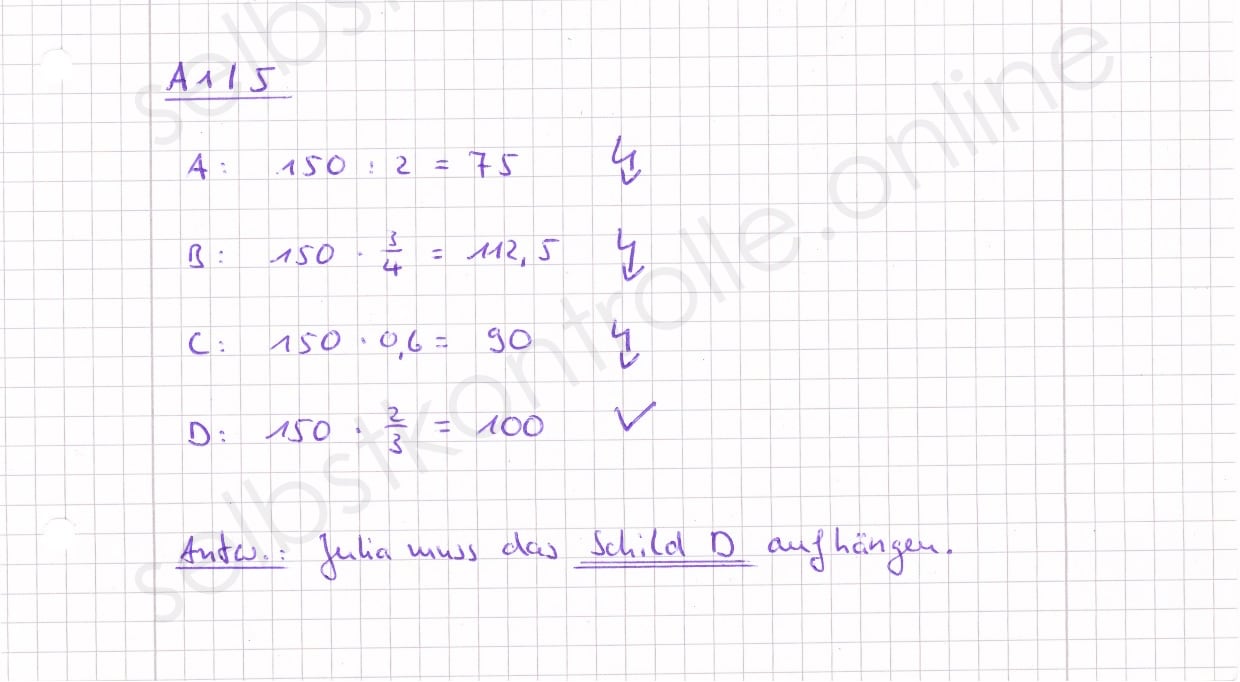 A1/5
A: 150 : 2 = 75 ↯
B: 150 · 3/4 = 112,5 ↯
C: 150 · 0,6 = 90 ↯
D: 150 · 2/3 = 100 ✓
Antw.: Julia muss das Schild D aufhängen.
selbstkontrolle.online
selbst